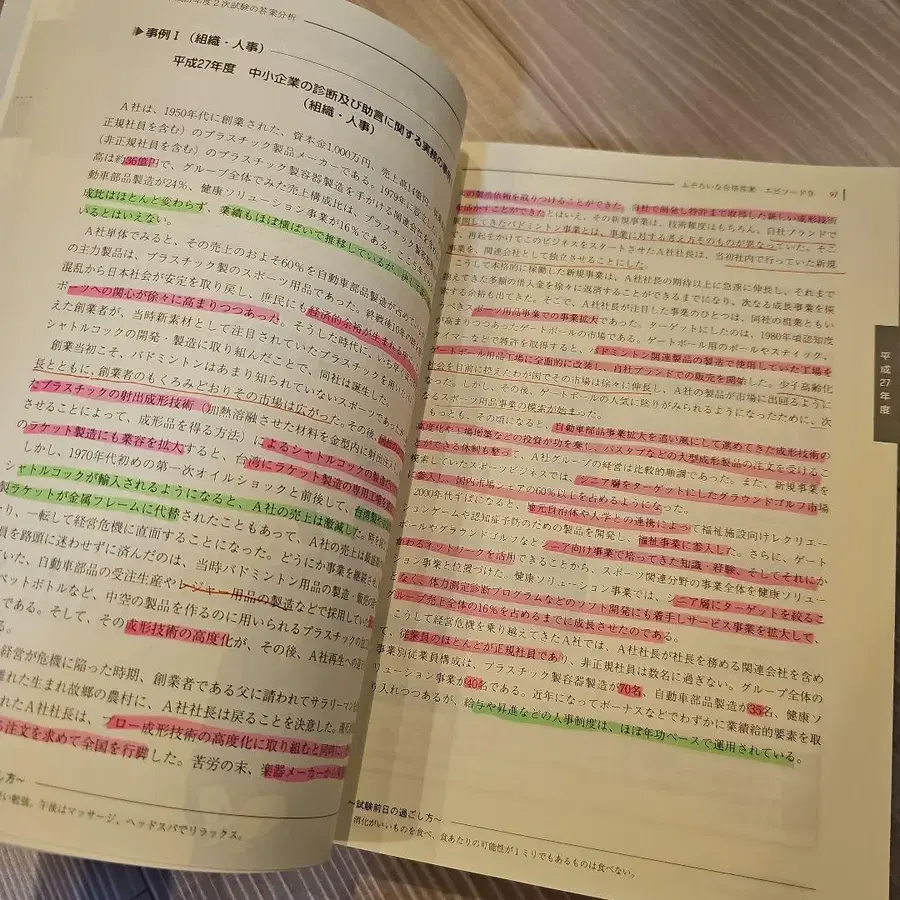 年度2次試験の答案分析
▶事例Ⅰ(組織・人事)
平成27年度 中小企業の診断及び助言に関する実務の事例
(組織・人事)
A社は、1950年代に創業された、資本金1,000万円、売上高14億円
正規社員を含む)のプラスチック製品メーカーである。1979年に設立
(非正規社員を含む)のプラスチック製容器製造を手がける関連会社を
高は約36億円で、グループ全体でみた売上構成比は、プラスチック製容
動車部品製造が24%、健康ソリューション事業が16%である。ここ
成比はほとんど変わらず、業績もほぼ横ばいで推移しているが、決して
いるとはいえない。
A社単体でみると、その売上のおよそ60%を自動車部品製造が占めている
の主力製品は、プラスチック製のスポーツ用品であった。終戦後10年
混乱から日本社会が安定を取り戻し、庶民にも経済的余裕が生まれ
ポーツへの関心が徐々に高まりつつあった。そうした時代に、いち早く
えた創業者が、当時新素材として注目されていたプラスチックを用い
シャトルコックの開発・製造に取り組んだことで、同社は誕生した。
創業当初こそ、バドミントンはあまり知られていないスポーツであった
長とともに、創業者のもくろみどおりその市場は広がった。その後、
たプラスチックの射出成形技術(加熱溶融させた材料を金型内に射出注入し
させることによって、成形品を得る方法)によるシャトルコックの製造
のラケット製造にも業容を拡大すると、台湾にラケット製造の専用工場を
しかし、1970年代初めの第一次オイルショックと前後して、台湾製
シャトルコックが輸入されるようになると、A社の売上は激減した。
製ラケットが金属フレームに代替されたこともあって、A社の売上は
り、一転して経営危機に直面することになった。どうにか事業を継続
員を路頭に迷わせずに済んだのは、当時バドミントン用品の製造・販売
いた、自動車部品の受注生産やレジャー用品の製造などで採用していた
ペットボトルなど、中空の製品を作るのに用いられるプラスチックの
である。そして、その成形技術の高度化が、その後、A社再生への
る。
経営が危機に陥った時期、創業者である父に請われてサラリーマン
離れた生まれ故郷の農村に、A社社長は戻ることを決意した。
れたA社社長は、ブロー成形技術の高度化に取り組むと同時に
る注文を求めて全国を行脚した。苦労の末、楽器メーカーから
ごし方~
軽い勉強。午後はマッサージ、ヘッドスパでリラックス。
ふぞろいな合格答案 エピソード9 97
の製造依頼を取りつけることができた。自社で開発し特許まで取得した新しい成形技術
を活かすことができたとはいえ、その新規事業は、技術難度はもちろん、自社ブランドで
展開してきたバドミントン事業とは、事業に対する考え方そのものが異なっていた。そこ
で、再起をかけてこのビジネスをスタートさせたA社社長は、当初社内で行っていた新規
事業を、関連会社として独立させることにした。
こうして本格的に稼働した新規事業は、A社社長の期待以上に急速に伸長し、それまで
抱えてきた多額の借入金を徐々に返済することができるまでになり、次なる成長事業を模
索する余裕も出てきた。そこで、A社社長が注目した事業のひとつは、同社の祖業ともい
うべきスポーツ用品事業での事業拡大であった。ターゲットにしたのは、1980年頃認知度
が高まりつつあったゲートボールの市場である。ゲートボール用のボールやスティック、
タイマーなどで特許を取得すると、バドミントン関連製品の製造で使用していた工場を
ゲートボール用品工場に全面的に改装し、自社ブランドでの販売を開始した。少子高齢化
社会を目前に控えたわが国でその市場は徐々に伸長し、A社の製品が市場に出回るように
なった。しかし、その後、ゲートボールの人気に陰りがみられるようになったために、次
なるスポーツ用品事業の模索が始まった。
もっとも、その頃になると、自動車部品事業拡大を追い風にして進めてきた成形技術の
高度化や工場増築などの投資が功を奏し、バスタブなどの大型成形製品の注文を受けるこ
とができる体制も整って、A社グループの経営は比較的順調であった。また、新規事業を
模索していたスポーツビジネスでは、シニア層をターゲットにしたグラウンドゴルフ市場
に参入し、国内市場シェアの60%以上を占めるようになった。
2000年代半ばになると、地元自治体や大学との連携によって福祉施設向けレクリエー
ションゲームや認知症予防のための製品を開発し、福祉事業に参入した。さらに、ゲート
ボールやグラウンドゴルフなどシニア向け事業で培ってきた知識・経験、そしてそれにか
かわるネットワークを活用できることから、スポーツ関連分野の事業全体を健康ソリュー
ション事業と位置づけた。健康ソリューション事業では、シニア層にターゲットを絞るこ
となく、体力測定診断プログラムなどのソフト開発にも着手しサービス事業を拡大して、
グループ売上全体の16%を占めるまでに成長させたのである。
こうして経営危機を乗り越えてきたA社では、A社社長が社長を務める関連会社を含め
て、従業員のほとんどが正規社員であり、非正規社員は数名に過ぎない。グループ全体の
事業別従業員構成は、プラスチック製容器製造が70名、自動車部品製造が35名、健康ソ
リューション事業が40名である。近年になってボーナスなどでわずかに業績給的要素を取
り入れつつあるが、給与や昇進などの人事制度は、ほぼ年功ベースで運用されている。
平成27年度
~試験前日の過ごし方~
消化がいいものを食べ、食あたりの可能性が1ミリでもあるものは食べない。